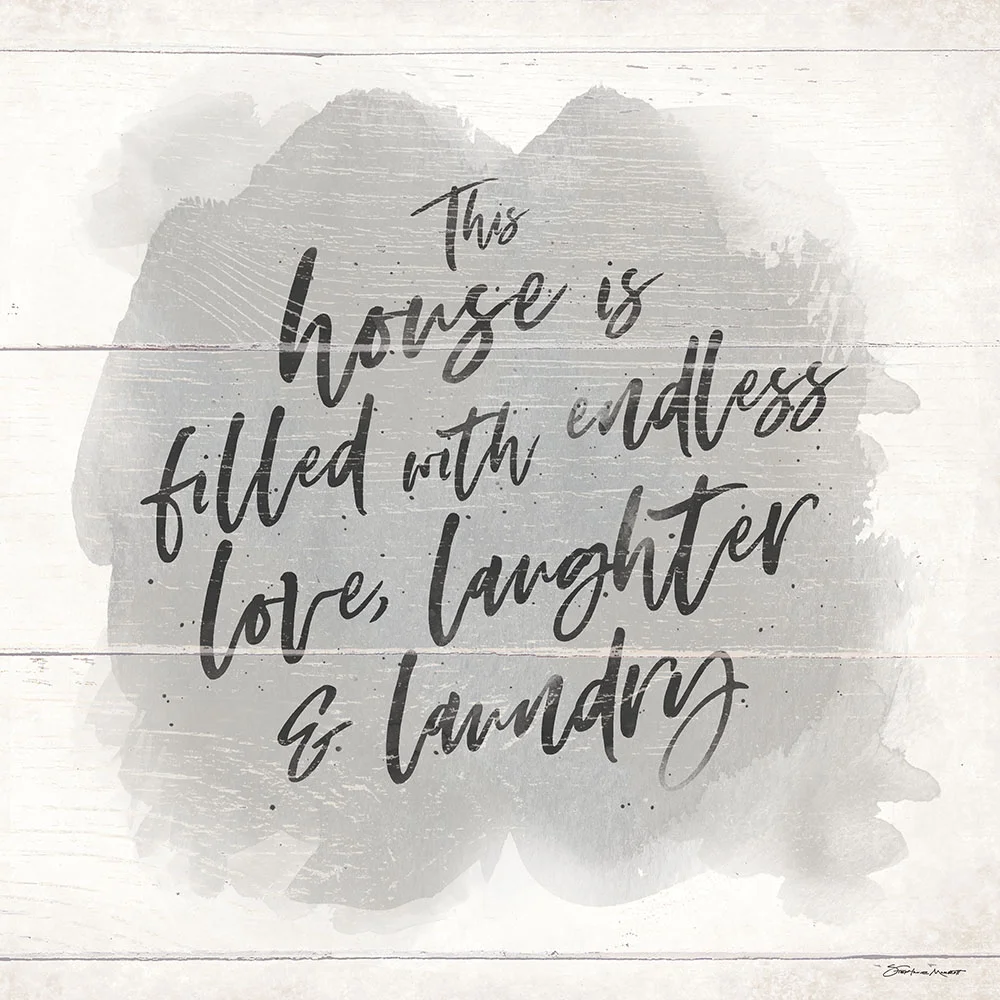 This
house is
filled with endless
love, laughter
& laundry